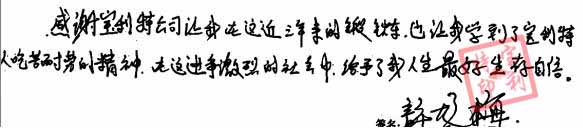 感谢宝利特公司让我在这近三年来的锻炼,也让我学到了宝利特
人吃苦耐劳的精神,在这进争激烈的社会中,给予了我人生最好生存自信。
签名: